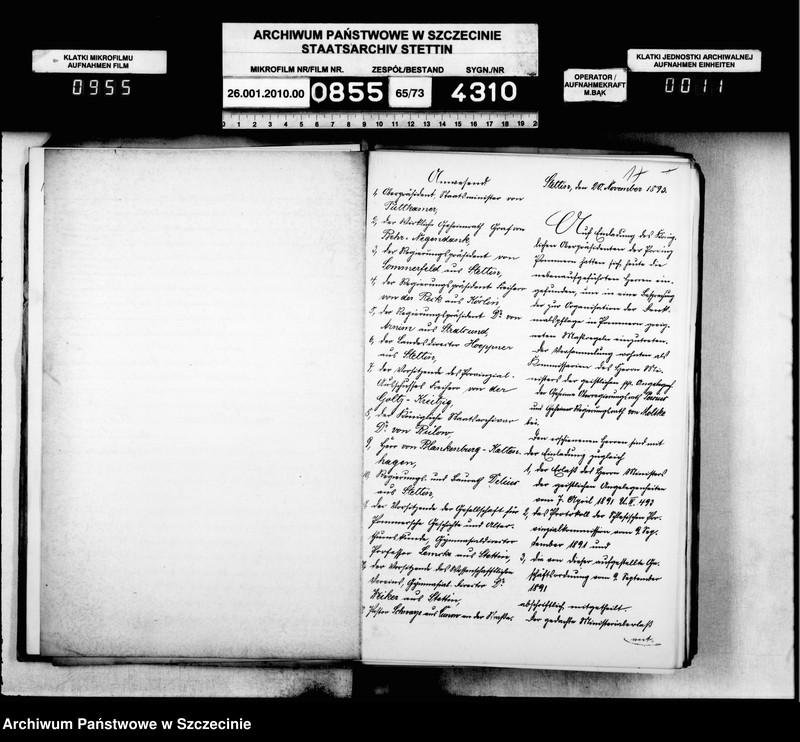 KLATKI MIKROFILMU
AUFNAHMEN FILM
0955
ARCHIWUM PAŃSTWOWE W SZCZECINIE
STAATSARCHIV STETTIN
MIKROFILM NR/FILM NR. ZESPÓŁ/BESTAND SYGN./NR
26.001.2010.00 0855 65/73 4310
0 1 2 3 4 5 6 7 8 9 10 11 12 13 14 15 16 17 18 19 2
OPERATOR /
AUFNAHMEKRAFT
M.BĄK
KLATKI JEDNOSTKI ARCHIWALNEJ
AUFNAHMEN EINHEITEN
0011
Anwesend
1, Oberpräsident, Staatsminister von
Puttkamer,
2, der Wirkliche Geheimrath Graf von
Behr-Negendank,
3, der Regierungspräsident von
Sommerfeld aus Stettin,
4, der Regierungspräsident Freiherr
von der Reck aus Köslin,
5, der Regierungspräsident Dr. von
Arnim aus Stralsund,
6, der Landesdirector Hoeppner
aus Stettin,
7, der Vorsitzende des Provinzial-
Ausschusses Freiherr von der
Goltz-Kreitzig,
8, der Königliche Staatsarchivar
Dr. von Bülow,
9, Herr von Blankenburg-
hagen,
10, Regierungs- und Baurath Delius
aus Stettin,
der Vorsitzende der Gesellschaft für
Pommersche Geschichte und Alter-
thumskunde, Gymnasialdirector
Professor Lemcke aus Stettin,
der Vorsitzende des Wissenschaftlichen
Vereins, Gymnasial-Director Dr.
aus Stettin,
Pastor aus an der
Stettin, den 20. November 1893.
Auf Einladung des König-
lichen Oberpräsidenten der Provinz
Pommern hatten sich heute die
nebenaufgeführten Herren ein-
gefunden, um in eine Besprechung
der zur Organisation der Denk-
malspflege in Pommern geeig-
neten Maßregeln einzutreten.
Der Versammlung wohnten als
Kommissarien des Herrn Mi-
nisters der geistlichen pp. Angelegenh.
der Geheime Oberregierungsrath Persius
und Geheime Regierungsrath von Moltke
bei.
Den erschienenen Herren sind mit
der Einladung zugleich
1, der Erlaß des Herrn Ministers
der geistlichen Angelegenheiten
vom 7. April 1891 U. IV. 497
2, das Protokoll der Schlesischen Pro-
vinzialkommission vom 9. Sep-
tember 1891 und
3, die von dieser aufgestellte Ge-
schäftsordnung vom 9. September
1891
abschriftlich mitgetheilt.
Der gedachte Ministerialerlaß